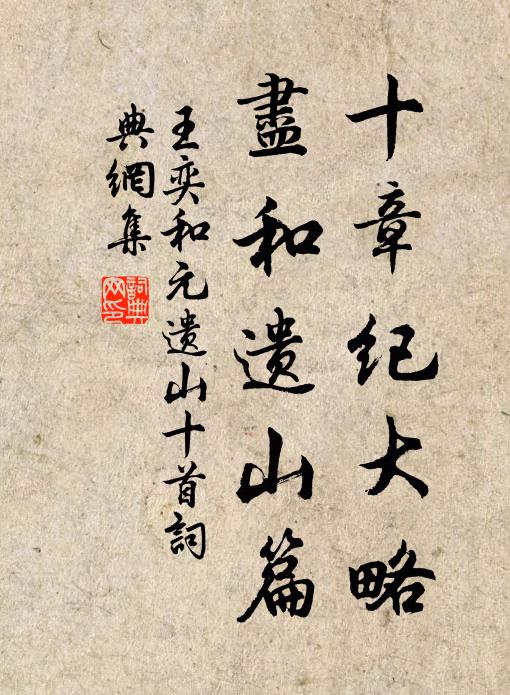 十章纪大略
盡和遗山篇
王奕和元遗山十首詞
典網集
詞典网印